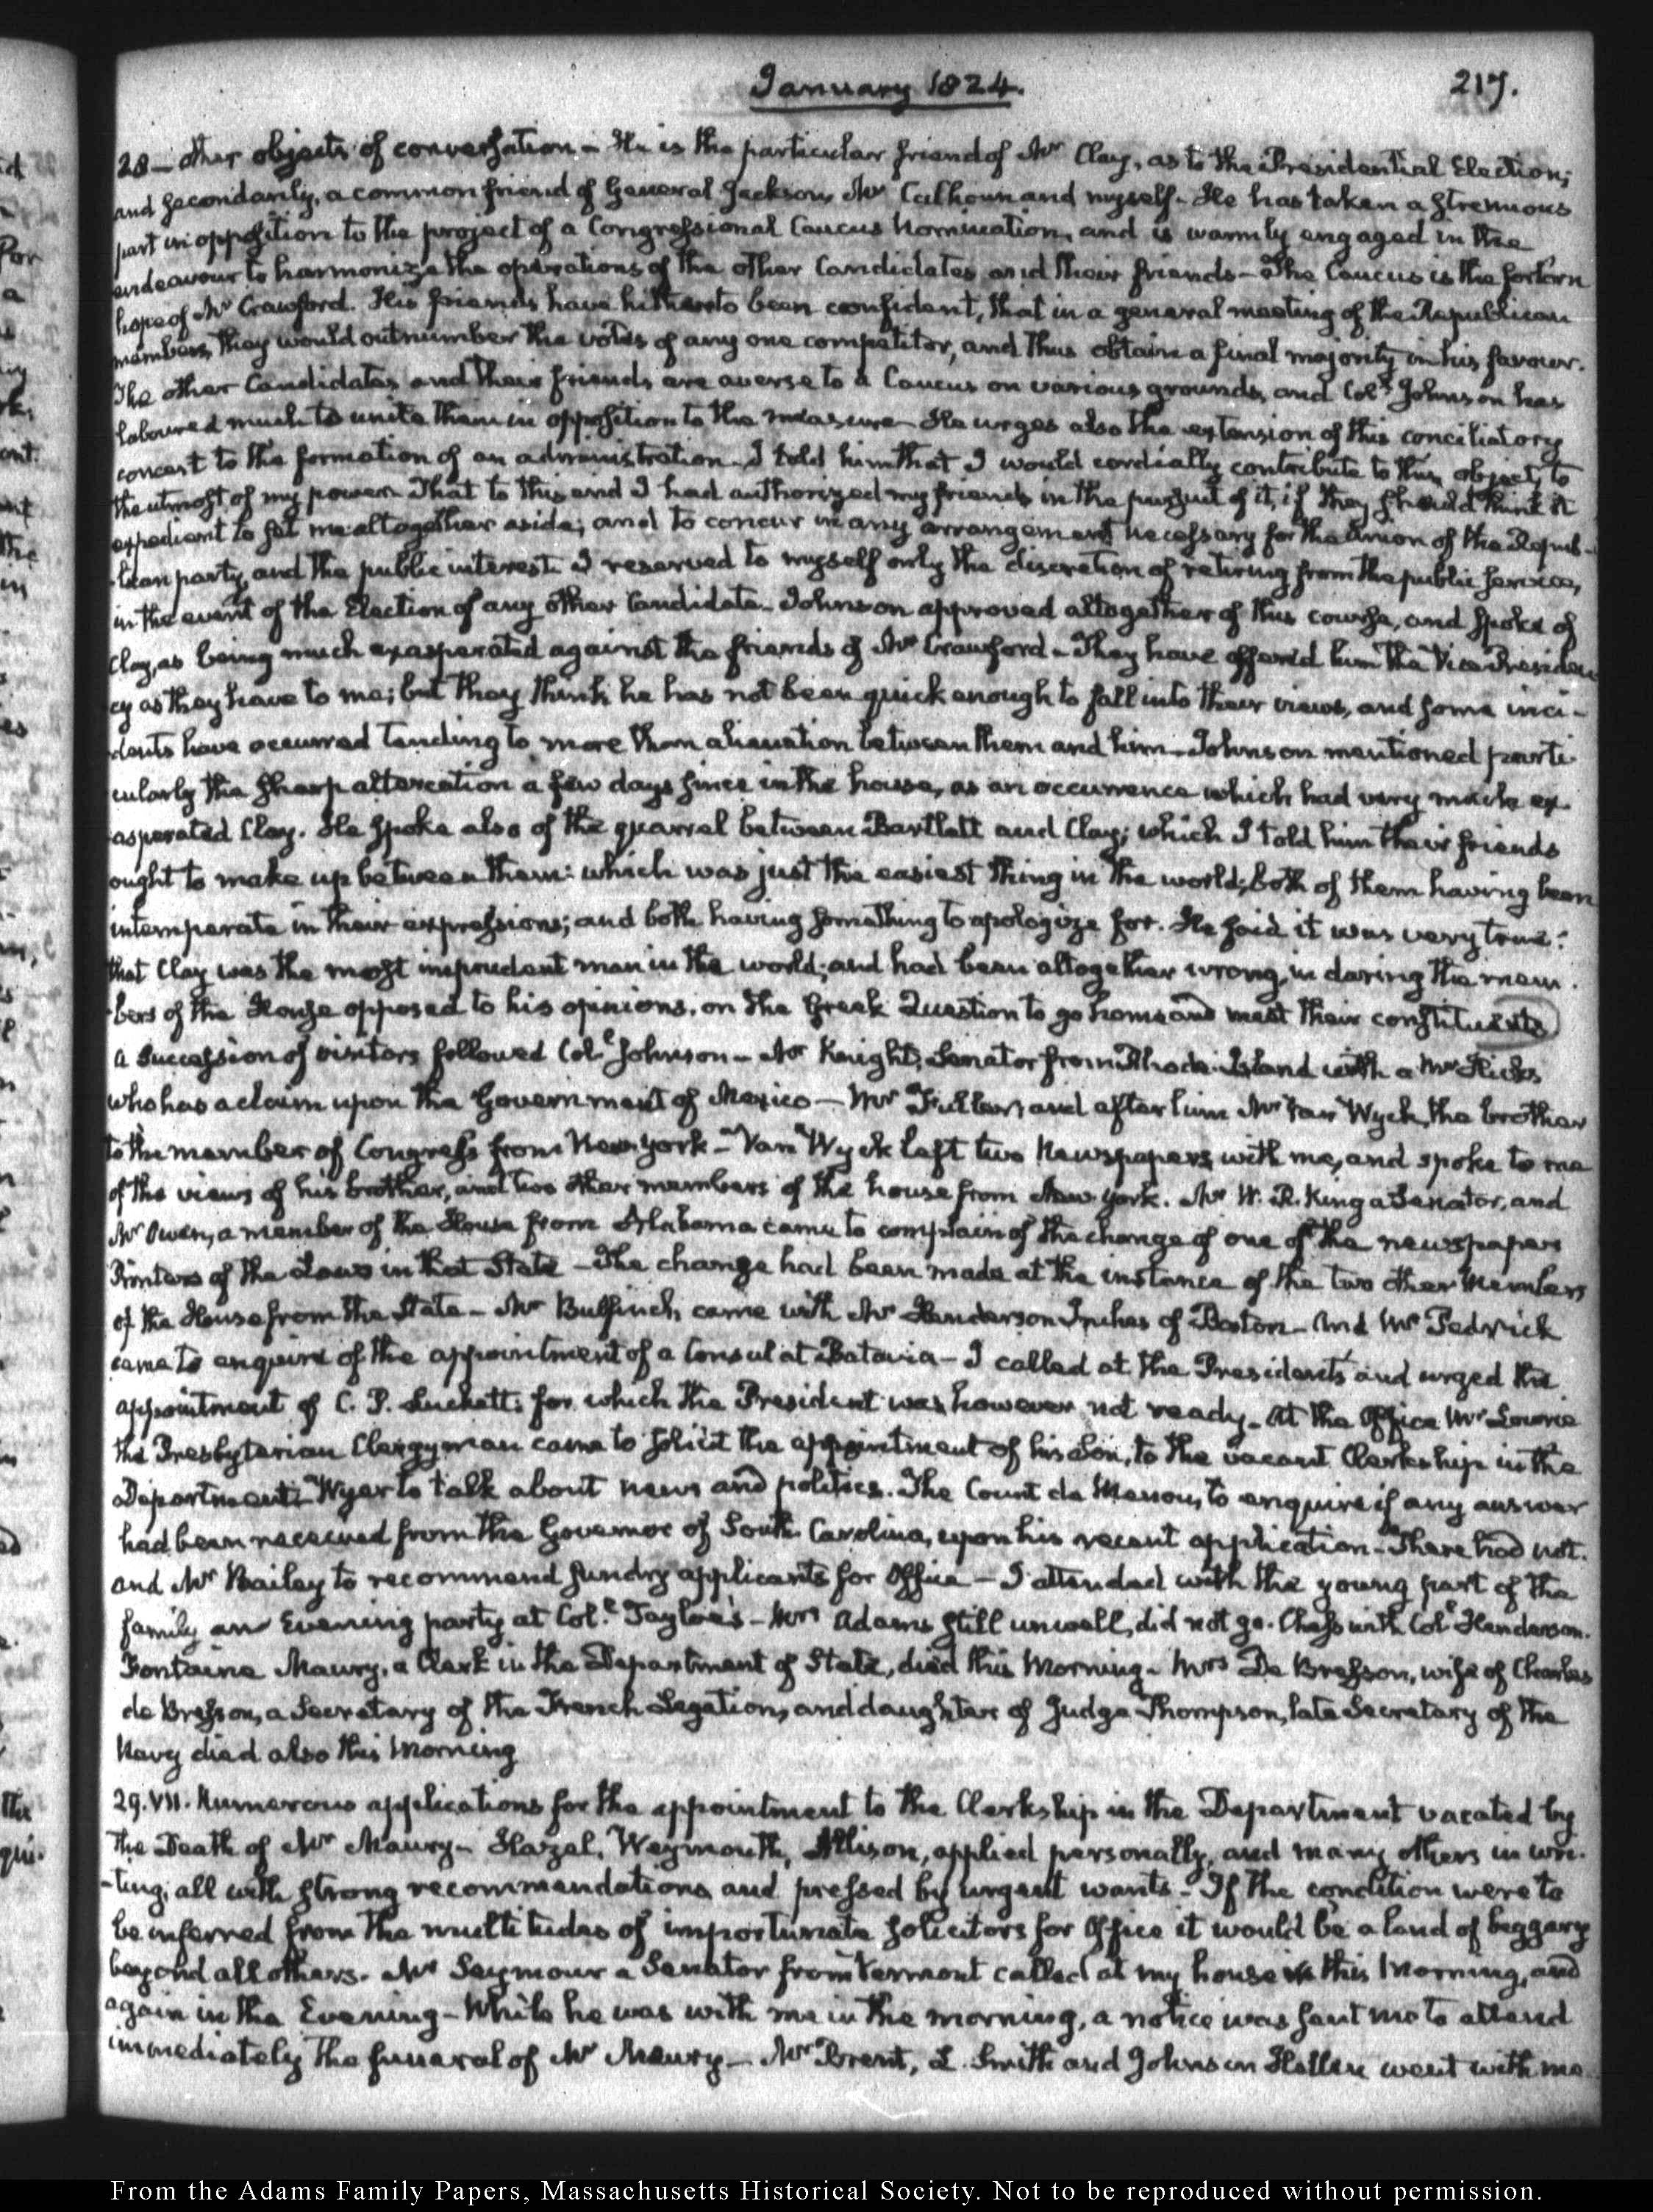 January 1824.
217.
28 — other objects of conversation - He is the particular friend of Mr Clay, as to the Presidential Election;
and secondarily, a common friend of General Jackson, Mr Calhoun and myself. He has taken a strenuous
part in opposition to the project of a Congressional Caucus Nomination, and is warmly engaged in the
endeavour to harmonize the operations of the other Candidates and their friends - The Caucus is the forlorn
hope of Mr Crawford. His friends have hitherto been confident, that in a general meeting of the Republican
members, they would outnumber the votes of any one competitor, and thus obtain a final majority in his favour.
The other Candidates and their friends are averse to a Caucus on various grounds, and Coll. Johnson has
laboured much to unite them in opposition to the measure - He urges also the extension of this conciliatory
concert to the formation of an administration - I told him that I would cordially contribute to this object, to
the utmost of my power. That to this end I had authorized my friends in the pursuit of it, if they should think it
expedient to set me altogether aside; and to concur in any arrangement necessary for the Union of the Repub-
lican party, and the public interest. I reserved to myself only the discretion of retiring from the public service,
in the event of the Election of any other Candidate - Johnson approved altogether of this course, and spoke of
Clay, as being much exasperated against the friends of Mr Crawford - They have offered him the Vice Presiden
cy as they have to me; but they think he has not been quick enough to fall into their views, and some inci-
dents have occurred tending to more than alienation between them and him - Johnson mentioned parti-
cularly the sharp altercation a few days since in the house, as an occurrence which had very much ex-
asperated Clay. He spoke also of the quarrel between Bartlett and Clay; which I told him their friends
ought to make up between them: which was just the easiest thing in the world; both of them having been
intemperate in their expressions; and both having something to apologize for. He said it was very true:
that Clay was the most imprudent man in the world; and had been altogether wrong, in daring the mem-
bers of the House opposed to his opinions, on the Greek Question to go home and meet their constituents
A Succession of visitors followed Coll. Johnson - Mr Knight, Senator from Rhode-Island with a Mr Hicks
who has a claim upon the Government of Mexico — Mr Fuller, and after him Mr Van Wyck, the brother
to the member of Congress from New York - Van Wyck left two Newspapers with me, and spoke to me
of the views of his brother, and two other members of the house from New York. Mr W. R. King a Senator, and
Mr Owen, a member of the House from Alabama came to complain of the change of one of the newspaper
Printers of the Laws in that State - The change had been made at the instance of the two other Members
of the House from the State - Mr Bulfinch came with Mr Henderson Inches of Boston - And Mr Pedrick
came to enquire of the appointment of a Consul at Batavia - I called at the President's and urged the
appointment of C. P. Luckett: for which the President was however not ready - At the Office Mr Lowrie
the Presbyterian Clergyman came to solicit the appointment of his Son, to the vacant Clerkship in the
Department. Wyer to talk about news and politics. The Count de Menou, to enquire if any answer
had been received from the Governor of South Carolina, upon his recent application - There had not.
and Mr Bailey to recommend sundry applicants for Office — I attended with the young part of the
family an Evening party at Coll. Tayloe's - Mrs Adams still unwell, did not go. Chess with Coll. Henderson.
Fontaine Maury, a Clerk in the Department of State, died this Morning - Mrs De Bresson, wife of Charles
de Bresson, a Secretary of the French Legation, and daughter of Judge Thompson, late Secretary of the
Navy died also this Morning
29. VII. Numerous applications for the appointment to the Clerkship in the Department vacated by
the Death of Mr Maury - Hazel, Weymouth, Allison, applied personally, and many others in wri-
-ting; all with strong recommendations and pressed by urgent wants - If the condition were to
be inferred from the multitudes of importunate solicitors for Office it would be a land of beggary
beyond all others. Mr Seymour a Senator from Vermont called at my house in this Morning, and
again in the Evening - While he was with me in the morning, a notice was sent me to attend
immediately the funeral of Mr Maury - Mr Brent, L. Smith and Johnson Hellen went with me
From the Adams Family Papers, Massachusetts Historical Society. Not to be reproduced without permission.